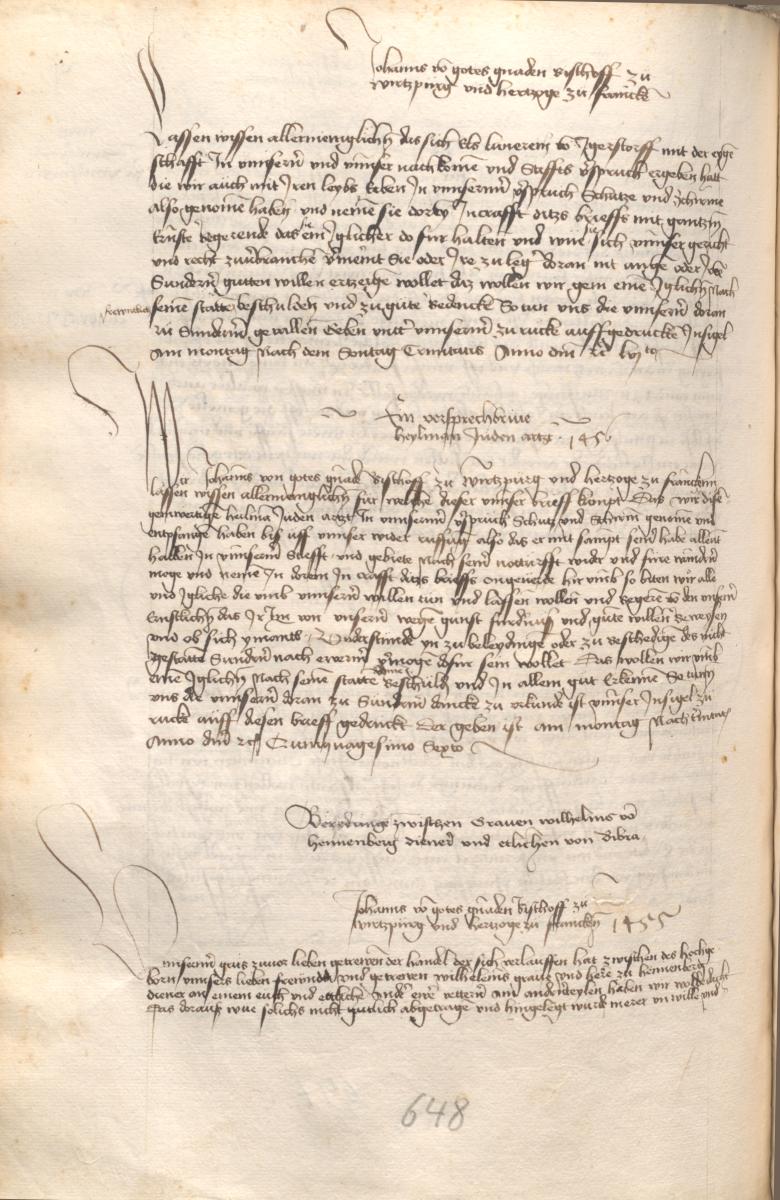 Johanns vō gotes gnaden Bischoff zu
wirtzpurg vnd hertzoge zu francken
Lassen wissen allermeniglich das sich Els von Jgerstorff mit der eige
schafft Jn vnnsern vnd vnnser nachkomē vnd Stiffts v̄spruch ergeben hatt
die wir auch mit Jren leybs Erben Jn vnnserm v̄spruch Schutze vnd Schirme
also genomē haben vnd nemē sie dorby Jn crafft ditz brieffs mit gantzm
Ernste begerende das ein Jglicher do fur halten vnd wue sich vnnser gericht
vnd recht zuuerbrauchen v̄meint Sie oder Jre zu leg doran nit ange oder
Sundern guten willen ertzeige wollet daz wollen wir gern eine Jglichn nach
seinē statte beschulden vnd zugute bedencke So tun vns die vnnsern doran
zu Sundern geuallen Geben mit vnnserm zu rucke auffgedruckte Jnsigel
Am montag Nach dem Sontag Trinitatis Anno dm̄ rc̄ lvjto
Ein versprechbriue
heylman Juden artzt 1456
Wir Johanns von gotes gnadē Bischoff zu Wirtzpurg vnd hertzoge zu francken
lassen wissen allermeniglich fur welche dieser vnnser brieff kompt Das wir diße
genwertige heilmā Juden artzt Jn vnnserm v̄spruch Schutz vnd Schirm genomē vnd
entpfange haben biß uff vnnser wider ruffung also das er mit sampt sein habe allent
halben Jn vnnserm Stifft vnd gebiete Nach sein notturfft wider vnd fure wandern
moge vnd nemē Jn dorein Jn crafft ditz brieffs ongeuerde hir vmb so biten wir alle
vnd Jgliche die vmb vnnsern willen tun vnd lassen wollen vnd begere vō den vnsern
Ernstlich das Jr Jm von vnsern wege gunst furdrung vnd gute willen Beweysen
vnd ob sich ymants Vnderstunde yn zu beleydinge oder zu beschedige des nicht
gestatte Sundern nach ewerm v̄moge dofur sein wollet Das wollen wir vmb
eine Jglichn Nach seine statte Beschuld vnd Jn allem gut Erkenne So tun
vns die vnnsern doran zu Sundern dancke zu vrkunde ist vnnser Jnsigel zu
rucke auff diesen brieff gedruckt Der geben ist am montag Nach
Anno dm̄ rc̄ Quinquagesimo Sexto
Beredunge zwischen Grauen wilhelms vō
hennenberg diener vnd etlichen von Bibra
Johanns vō gotes gnaden Bischoff zu
wirtzpurg vnd hertzoge zu francken 1455
Vnnsern grus zuuor lieben getrewen der handel der sich verlauffen hat zwischen des hochge
born vnnsers lieben frewnds vnd getrewen wilhelms graue vnd here zu hennenberg
diener an einem euch vnd etliche ewre vettern am andernteylen haben wir
das dorauß wue solichs nicht gutlich abgetrage vnd hingelegt wurd merer vnwille vnd
648